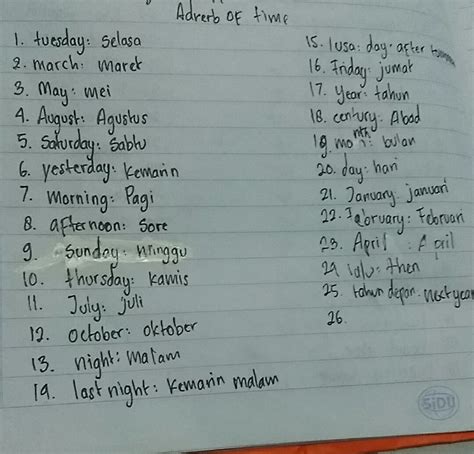 Adverb of time
1. tuesday: Selasa
2. march: maret
3. May: mei
4. August: Agustus
5. Saturday: Sabtu
6. yesterday: Kemarin
7. Morning: Pagi
8. afternoon: Sore
9. Sunday: Minggu
10. thursday: kamis
11. July: juli
12. october: oktober
13. night: malam
14. last night: Kemarin malam
15. lusa: day after
16. Friday: jumat
17. Year: tahun
18. century: Abad
19. month: bulan
20. day: hari
21. January: januari
22. February: Februari
23. April : April
24 lalu: then
25. tahun depan: next year
26.
SiDU